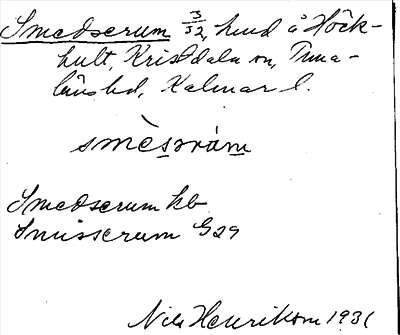 Smedserum 3/32, hmd å Höck-
hult, Kristdala sn, Tuna-
läns hd, Kalmar l.
smèsərúm
Smedserum kb
Smisserum G29
Nils Henrikson 1931